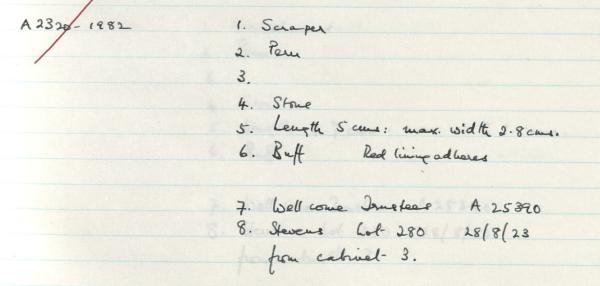 A 2320-1982 1. Scraper
2. Peru
3.
4. Stone
5. Length 5 cms: max. width 2.8 cms.
6. Buff Red lining adheres
7. Wellcome Trustees A 25390
8. Stevens Lot 280 28/8/23
from cabinet 3.